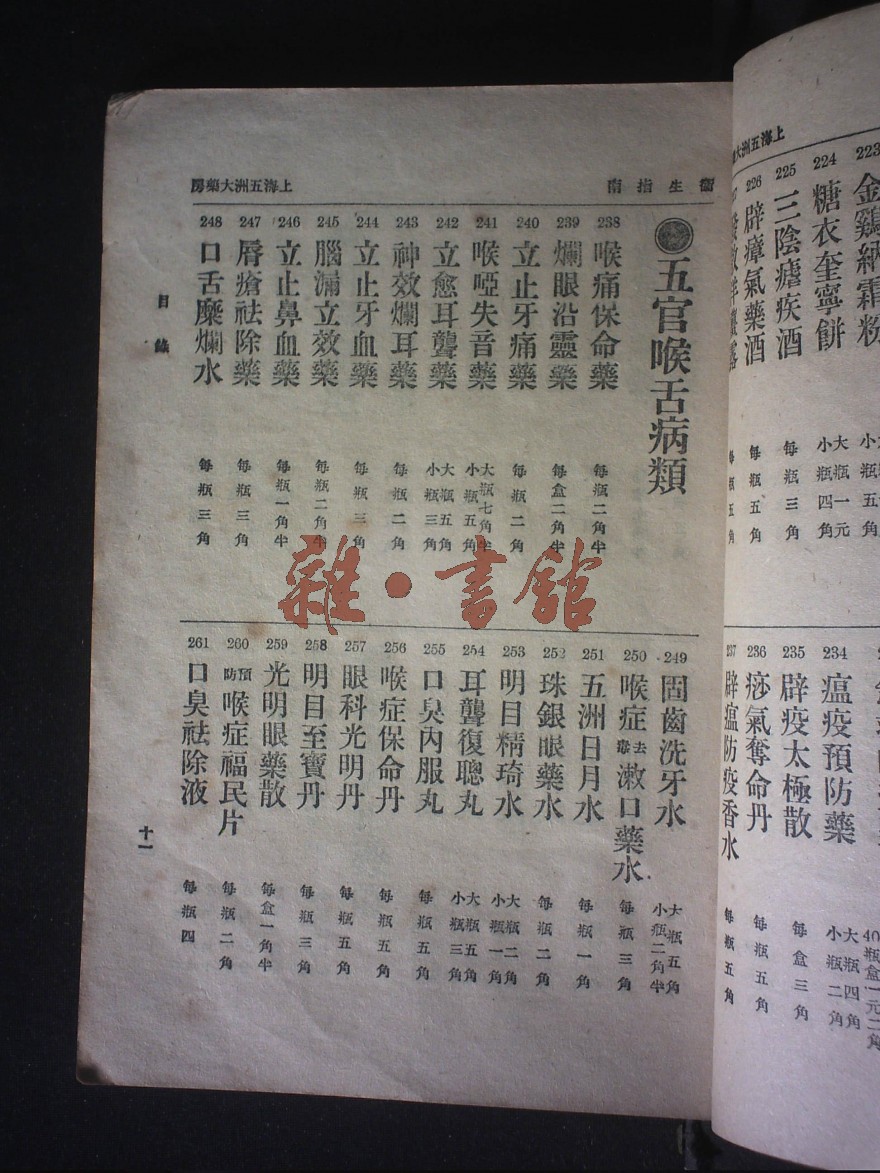 上海五洲大
223 金鷄納霜粉
224 糖衣奎寧餅 大瓶一元 小瓶四角
225 三陰瘧疾酒 每瓶三角
226 辟瘴氣藥酒 每瓶五角
每瓶五角
234 瘟疫預防藥 大瓶四角 小瓶二角
235 辟疫太極散 每盒三角
236 痧氣奪命丹 每瓶五角
237 辟瘟防疫香水 每瓶五角
衛生指南
上海五洲大藥房
五官喉舌病類
238 喉痛保命藥 每瓶二角半
239 爛眼沿靈藥 每盒二角半
240 立止牙痛藥 每瓶二角
241 喉啞失音藥 大瓶七角半 小瓶五角
242 立愈耳聾藥 大瓶五角 小瓶三角
243 神效爛耳藥 每瓶二角
244 立止牙血藥 每瓶三角
245 腦漏立效藥 每瓶二角半
246 立止鼻血藥 每瓶一角半
247 唇瘡祛除藥 每瓶三角
248 口舌糜爛水 每瓶三角
249 固齒洗牙水 大瓶五角 小瓶二角半
250 喉症去毒漱口藥水 每瓶三角
251 五洲日月水 每瓶一角
252 珠銀眼藥水 每瓶二角
253 明目精琦水 大瓶二角 小瓶一角
254 耳聾復聰丸 大瓶五角 小瓶三角
255 口臭內服丸 每瓶五角
256 喉症保命丹 每瓶五角
257 眼科光明丹 每瓶五角
258 明目至寶丹 每瓶三角
259 光明眼藥散 每盒一角半
260 預防喉症福民片 每瓶二角
261 口臭祛除液 每瓶四
目錄
十一
雜·書館